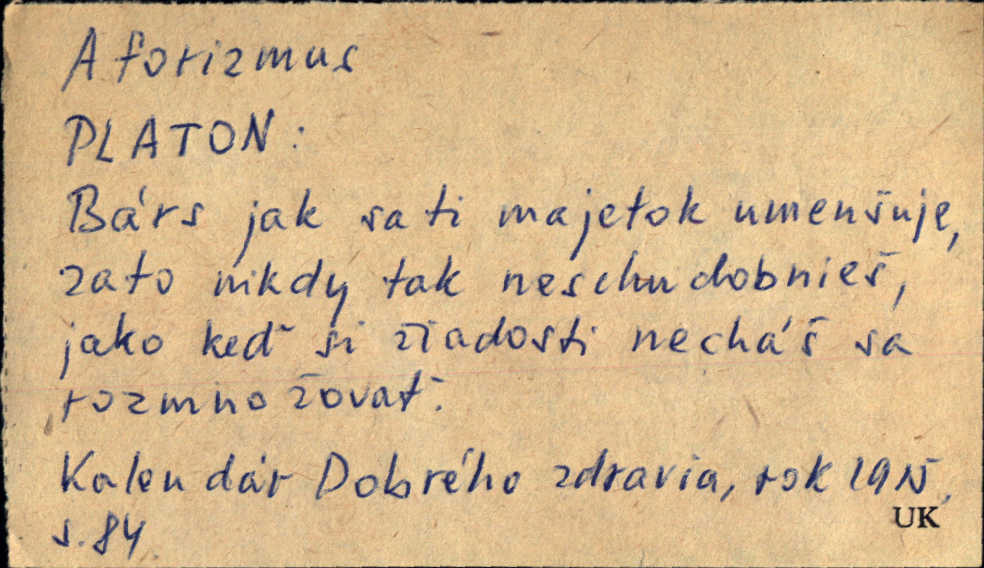 Aforizmus
PLATON:
Bárs jak sa ti majetok umenšuje,
zato nikdy tak neschudobnieš,
jako keď si žiadosti necháš sa
rozmnožovať.
Kalendár Dobrého zdravia, rok 1915,
s. 84
UK